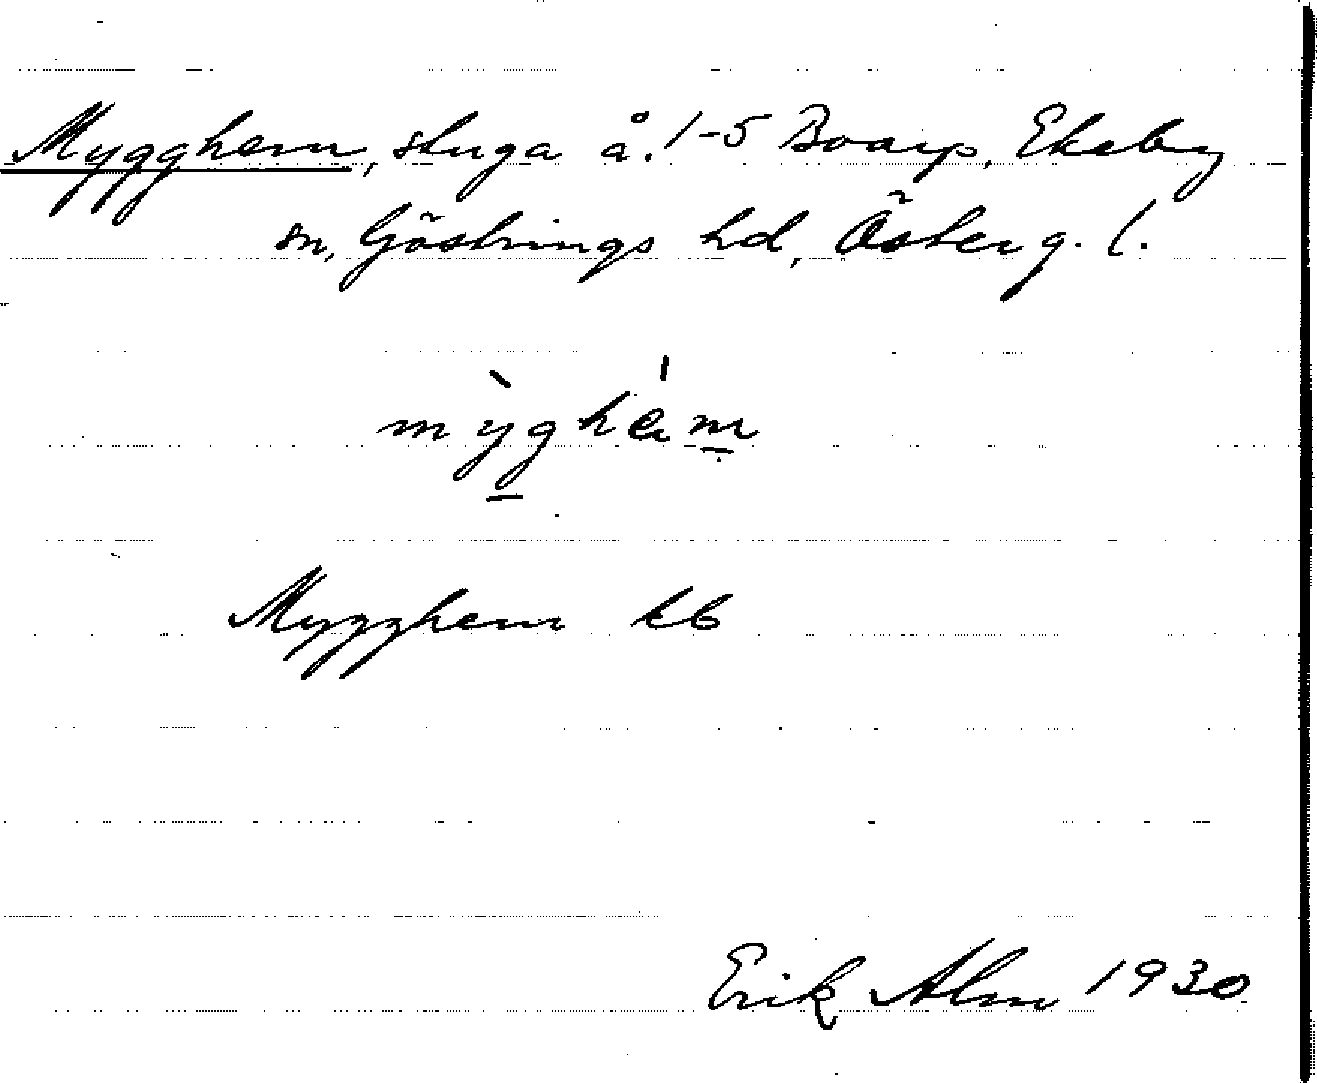 Mygghem, stuga å. 1-5 Boarp, Ekeby
sn, Göstrings hd, Österg. l.
mỳghém
Mygghem kb
Erik Alm 1930